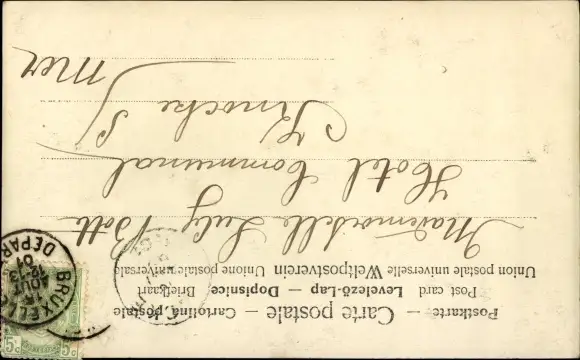 Postkarte — Carte postale — Cartolina postale
Post card — Levelező-Lap — Dopisnice — Briefkaart
Union postale universelle Weltpostverein Unione postale universale
Mademoiselle Luly Bott
Hotel Communal
Knocke s/
mer
BRUXELLES
DEPART
12-13
AOUT
01
5c
5c